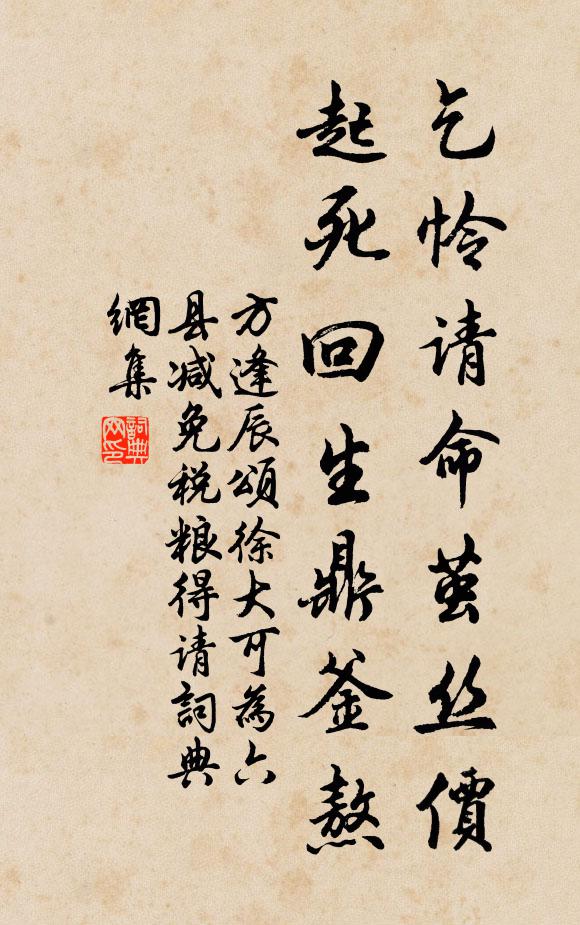 乞怜请命茧丝價
起死回生鼎釜熬
方逢辰頌徐大可為六
县减免税粮得请詞典
網集
詞典
网印